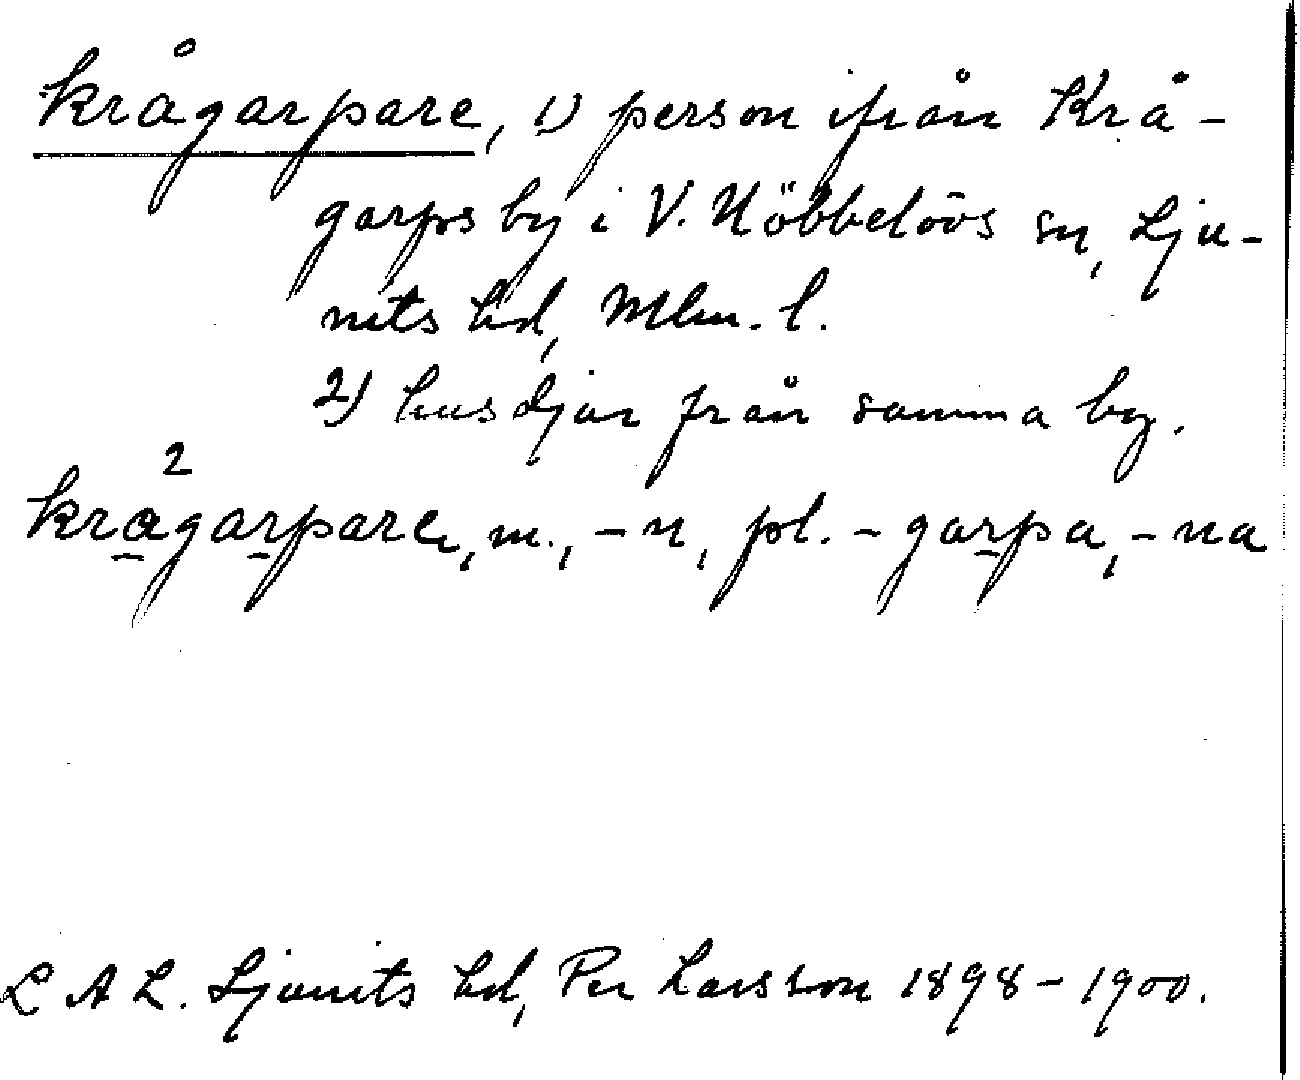 krågarpare, 1) person ifrån Krå-
garps by i V. Nöbbelövs sn, Lju-
nits hd, Mlm. l.
2) husdjur från samma by.
2
krågarpare, m., -n, pl. -garpa, -na
L A L. Ljunits hd, Per Larsson 1898-1900.